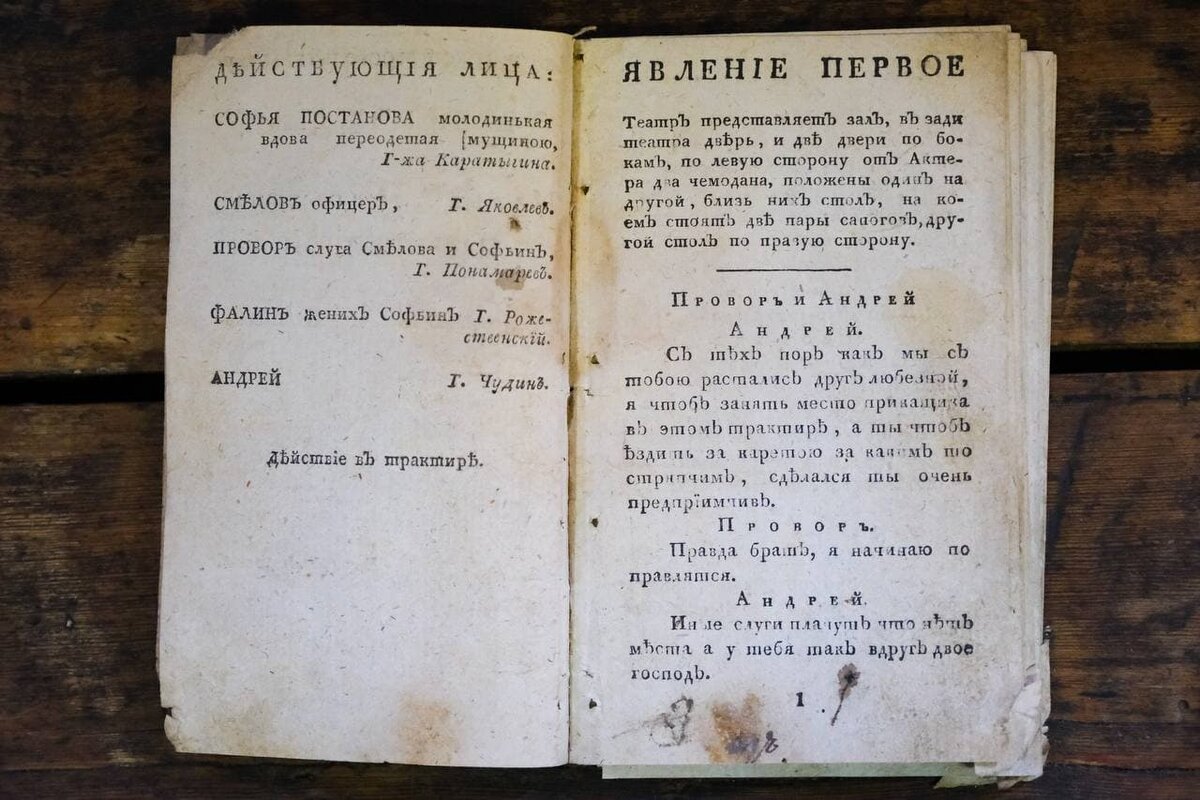 ДѢЙСТВУЮЩІЯ ЛИЦА:
СОФЬЯ ПОСТАНОВА молодинькая
вдова переодетая [мущиною,
Г-жа Каратыгина.
СМѢЛОВЪ офицеръ, Г. Яковлевъ.
ПРОВОРЪ слуга Смѣлова и Софьинъ,
Г. Понамаревъ.
ФАЛИНЪ жених Софьинъ Г. Роже-
ственскій.
АНДРЕЙ Г. Чудинъ.
Дѣйствіе въ трактирѣ.
ЯВЛЕНІЕ ПЕРВОЕ
Театръ представляетъ залъ, въ зади
театра дверь, и двѣ двери по бо-
камъ, по левую сторону отъ Акте-
ра два чемодана, положены одинъ на
другой, близь нихъ столъ, на ко-
емъ стоятъ двѣ пары сапоговъ, дру-
гой столъ по правую сторону.
Проворъ и Андрей
Андрей.
Съ тѣхъ поръ какъ мы съ
тобою растались другъ любезной,
я чтобъ занять место прикащика
въ этомъ трактирѣ, а ты чтобъ
ѣздить за каретою за какимъ то
стряпчимъ, сдѣлался ты очень
предпріимчивъ.
Проворъ.
Правда братъ, я начинаю по
правлятся.
Андрей.
Иные слуги плачутъ что нѣтъ
мѣста а у тебя такъ вдругъ двое
господъ.
1